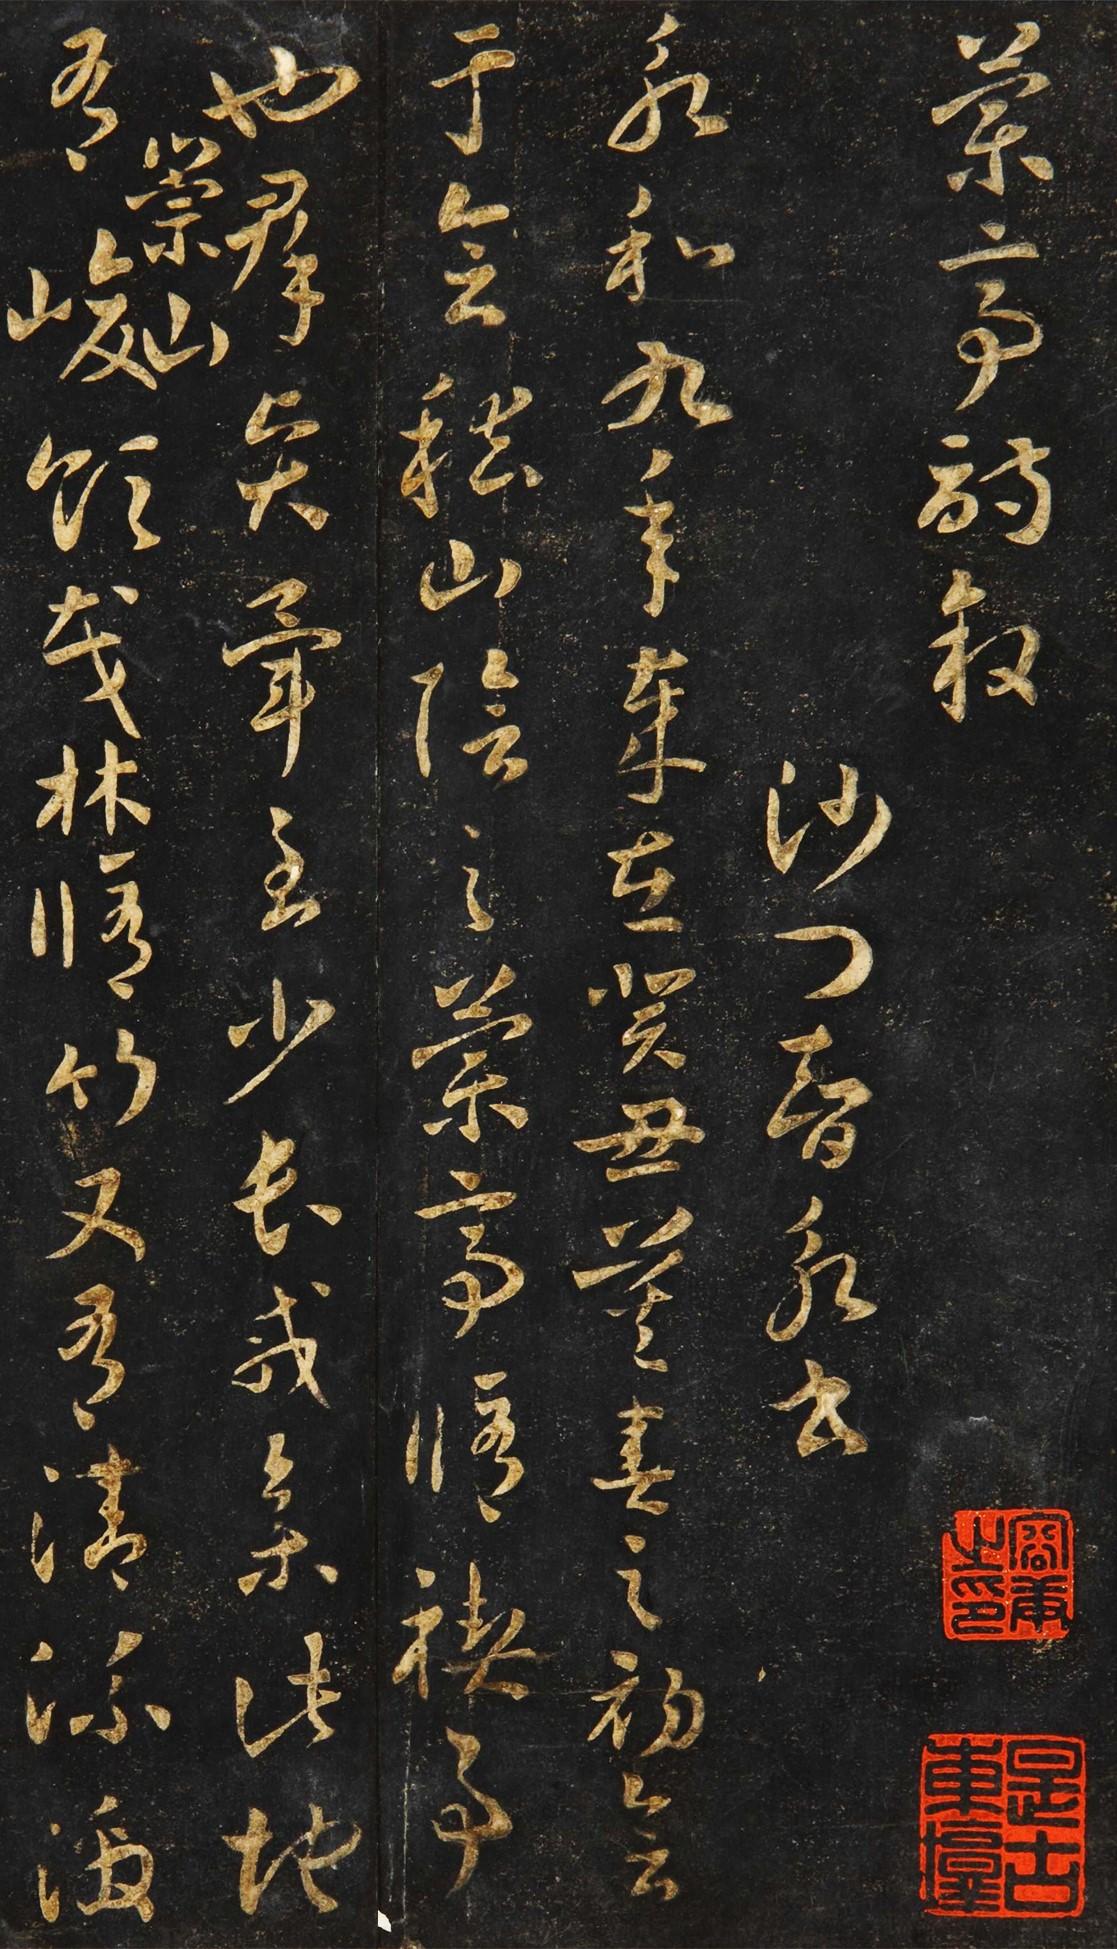 蘭亭詩敘
沙門智永書
永和九年歲在癸丑暮春之初會
于會稽山陰之蘭亭脩禊事
也群賢畢至少長咸集此地
有崇山峻領茂林脩竹又有清流激